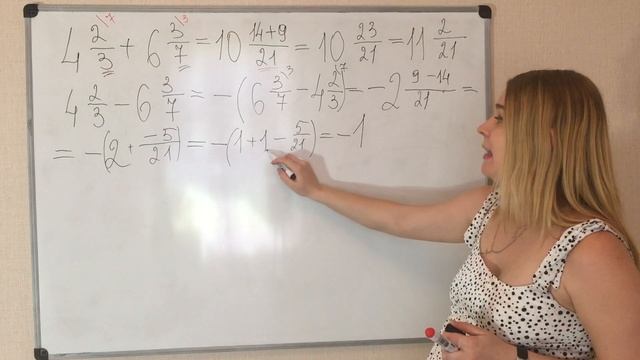 4 2/3 + 6 3/7 = 10 (14+9)/21 = 10 23/21 = 11 2/21
4 2/3 - 6 3/7 = -(6 3/7 - 4 2/3) = -2 (9-14)/21 =
= -(2 + -5/21) = -(1+1 - 5/21) = -1